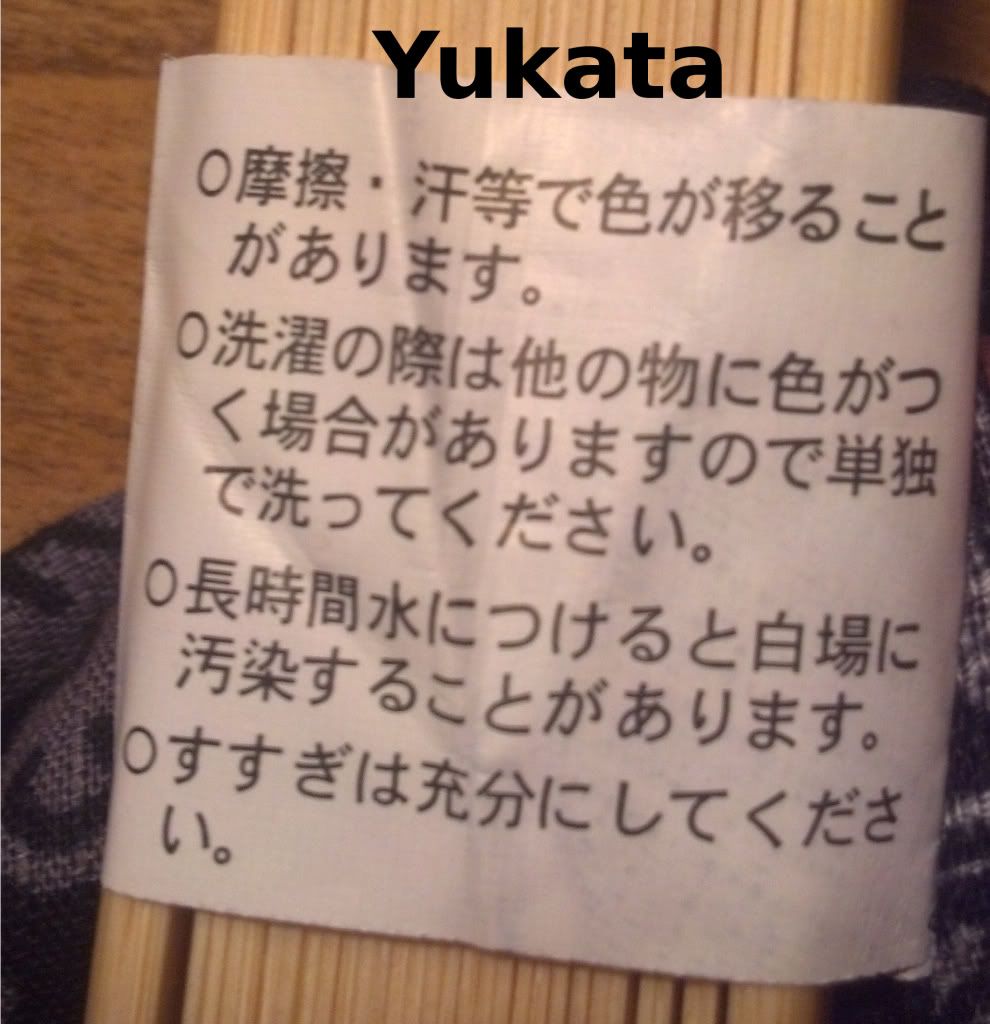 Yukata
○摩擦・汗等で色が移ること
があります。
○洗濯の際は他の物に色がつ
く場合がありますので単独
で洗ってください。
○長時間水につけると白場に
汚染することがあります。
○すすぎは充分にしてくださ
い。